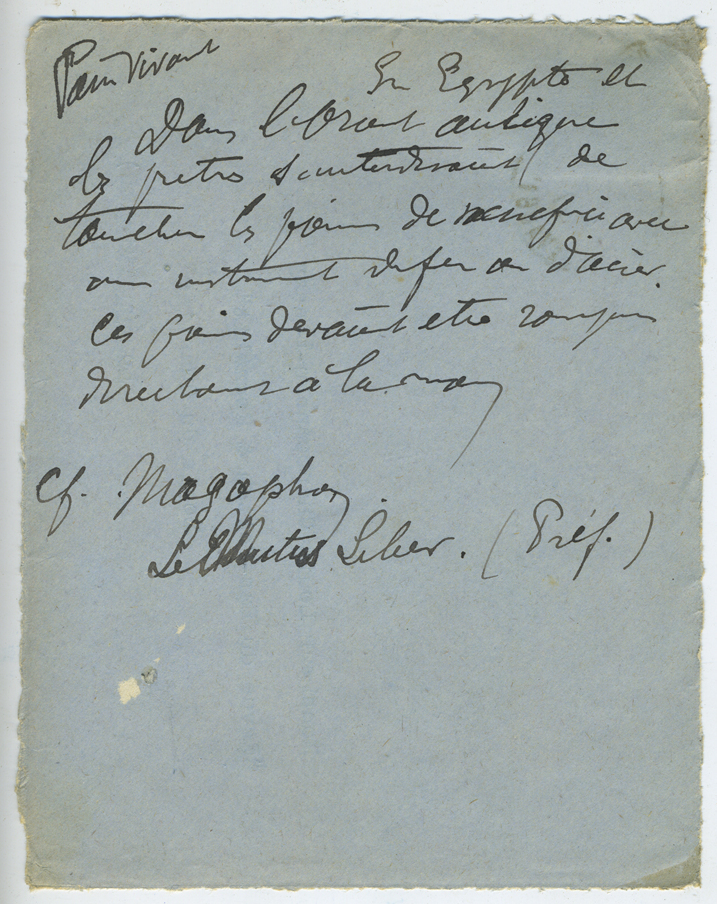 Pain vivant
En Egypte et
Dans l'Orient antique
les pretres s'interdisaient de
toucher les pains de sacrifice avec
un instrument de fer ou d'acier.
Ces pains devaient etre rompus
directement à la main
Cf. Magophon
Le Mutus Liber. (Préf.)